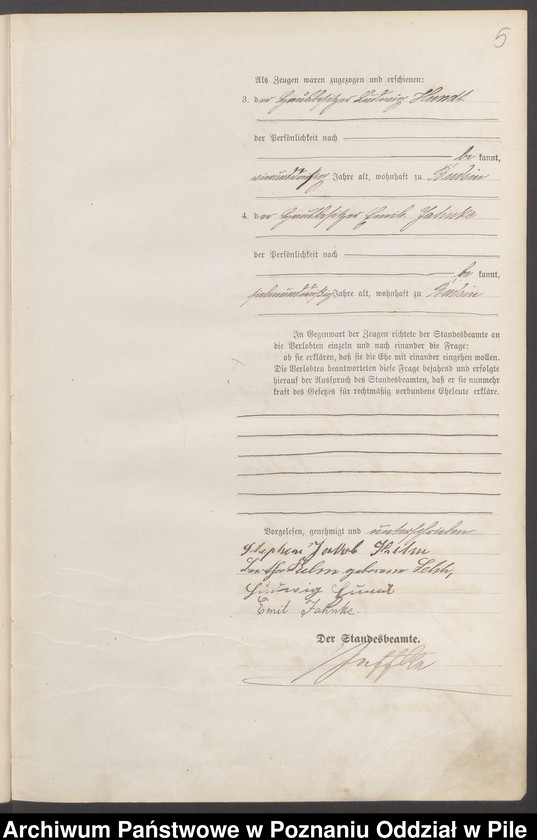 5
Als Zeugen waren zugezogen und erschienen:
3. der Ludwig Hundt
der Persönlichkeit nach
be kannt,
Jahre alt, wohnhaft zu
4. der Emil Jahnke
der Persönlichkeit nach
be kannt,
Jahre alt, wohnhaft zu
In Gegenwart der Zeugen richtete der Standesbeamte an
die Verlobten einzeln und nach einander die Frage:
ob sie erklären, daß sie die Ehe mit einander eingehen wollen.
Die Verlobten beantworteten diese Frage bejahend und erfolgte
hierauf der Ausspruch des Standesbeamten, daß er sie nunmehr
kraft des Gesetzes für rechtmäßig verbundene Eheleute erkläre.
Vorgelesen, genehmigt und unterschrieben
Stephan Jakob
geborene
Ludwig Hundt
Emil Jahnke
Der Standesbeamte.
Archiwum Państwowe w Poznaniu Oddział w Pile